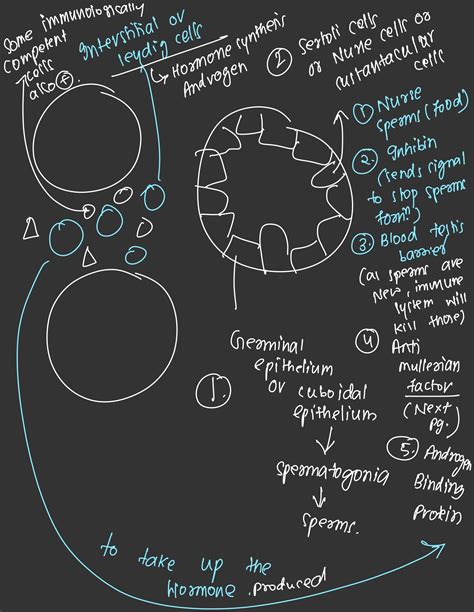 Some immunologically
competent
cells
also +
Interstitial or
leydig cells
↳ Hormone synthesis
Androgen
② Sertoli cells
or Nurse cells or
sustantacular
cells
① Nurse
sperms (food)
② Inhibin
(sends signal
to stop sperms
formn)
③ Blood testis
barrier
(as sperms are
new, immune
system will
kill those)
④ Anti
mullerian
factor
(Next
pg.)
⑤ Androgen
Binding
Protein
①. Germinal
epithelium
or cuboidal
epithelium
↓
Spermatogonia
↓
Sperms.
to take up the
hormone produced